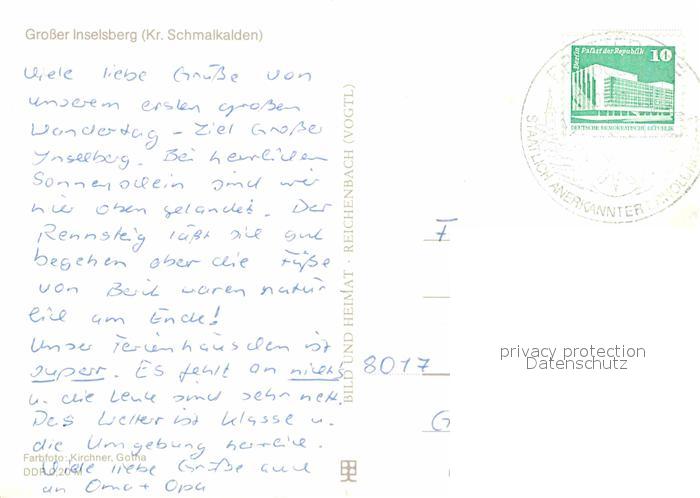 Großer Inselsberg (Kr. Schmalkalden)
Viele liebe Grüße von
unserem ersten großen
Wandertag - Ziel Großer
Ynselberg. Bei herrlichem
Sonnenschein sind wir
hier oben gelandet. Der
Rennsteig läßt sich gut
begehen aber die Füße
von Beril waren natür
lich am Ende!
Unser Ferienhäuschen ist
superr. Es fehlt an nichts
u. die Leute sind sehr nett.
Das Wetter ist Klasse u.
die Umgebung herrlich.
Viele liebe Grüße auch
an Oma + Opa
Farbfoto: Kirchner, Gotha
DDR 0,20 M
BILD UND HEIMAT · REICHENBACH (VOGTL)
Berlin Palast der Republik 10
DEUTSCHE DEMOKRATISCHE REPUBLIK
STAATLICH ANERKANNTER
F
8017
G
privacy protection
Datenschutz